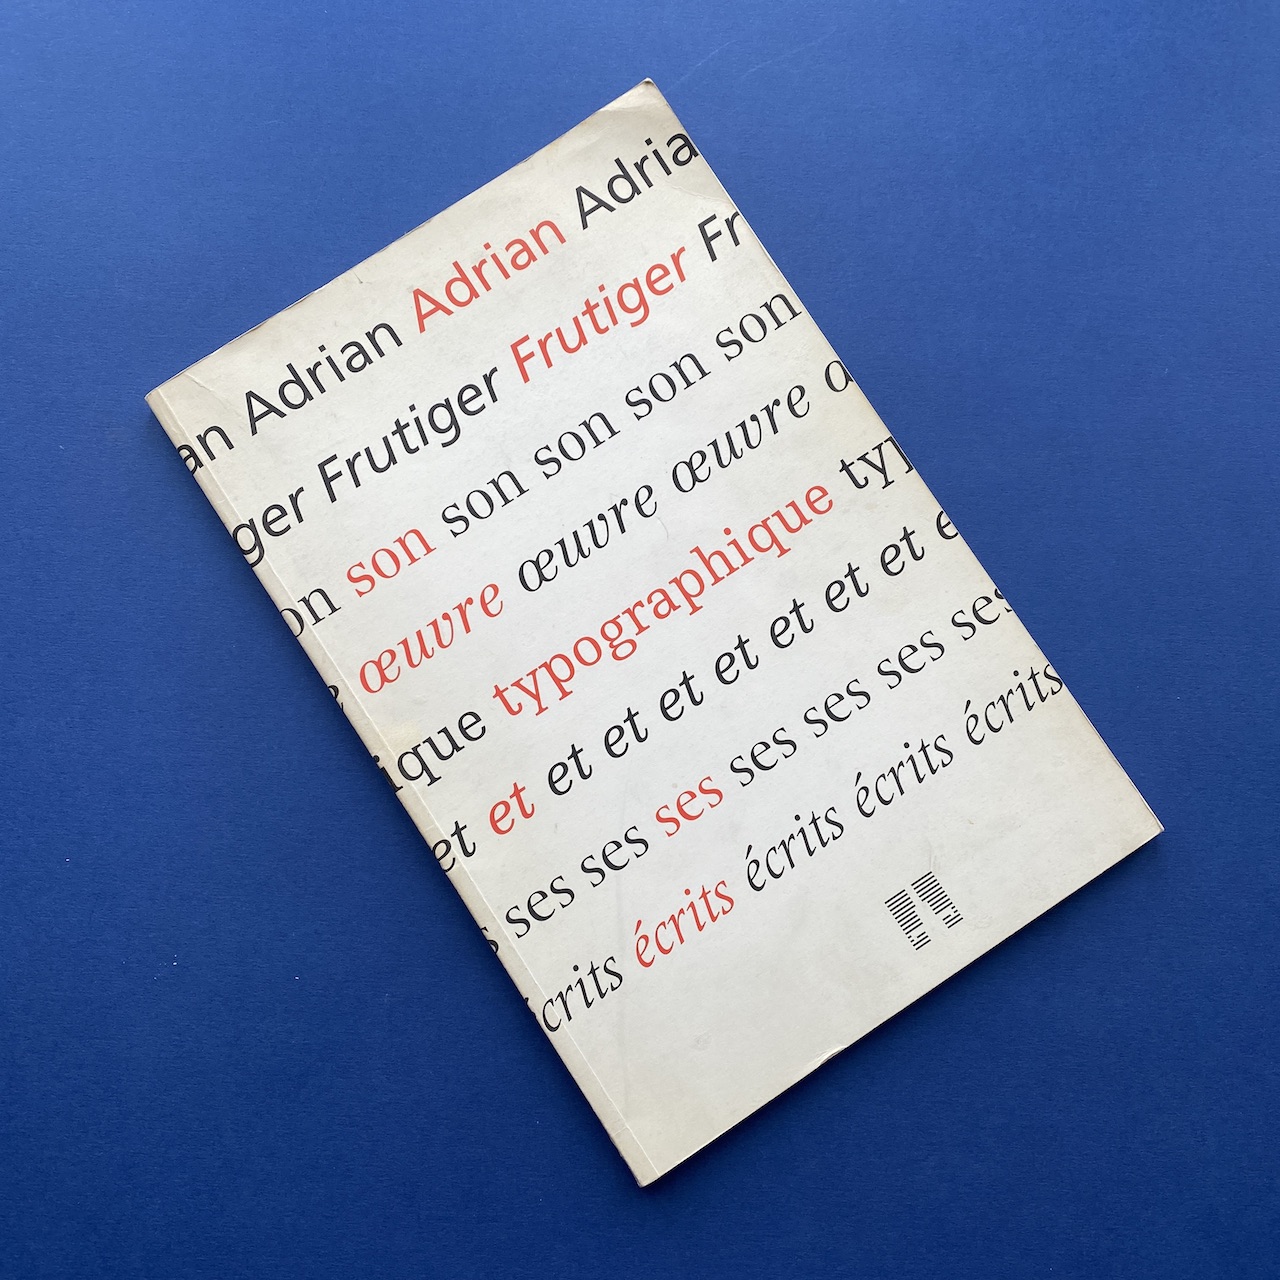 an Adrian Adrian Adria
ger Frutiger Frutiger Fr
on son son son son son
e œuvre œuvre œuvre œ
ique typographique typ
et et et et et et et et e
s ses ses ses ses ses ses ses
crits écrits écrits écrits écrits